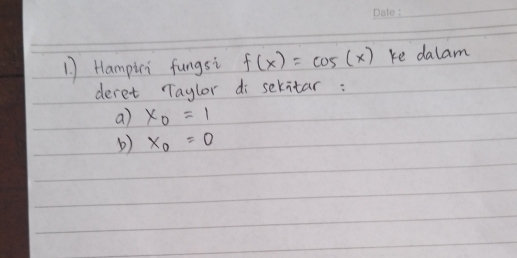 Date :
1.) Hampiri fungsi f(x) = cos (x) ke dalam
deret Taylor di sekitar :
a) x₀ = 1
b) x₀ = 0